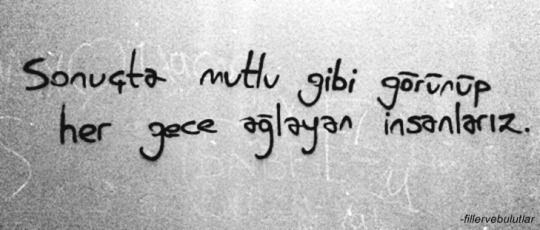 Sonuçta mutlu gibi görünüp
her gece ağlayan insanlarız.
-fillervebulutlar